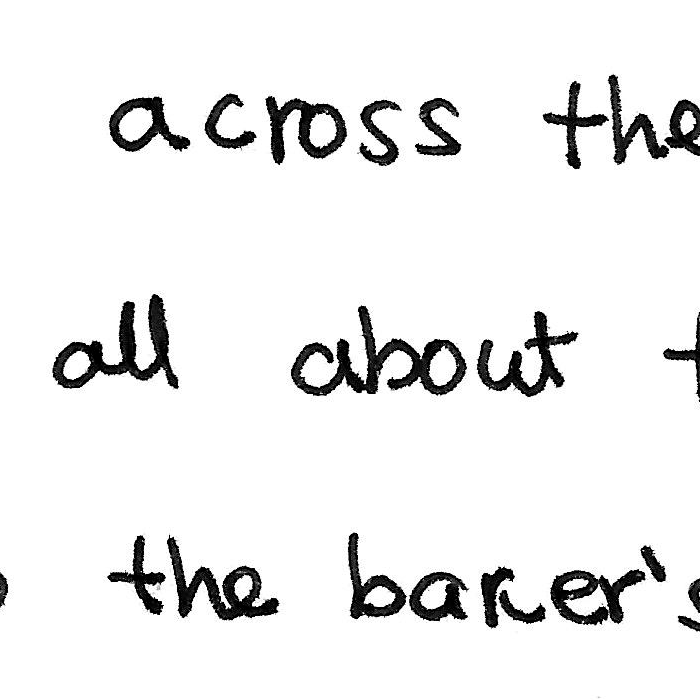 across the
all about
the baker's